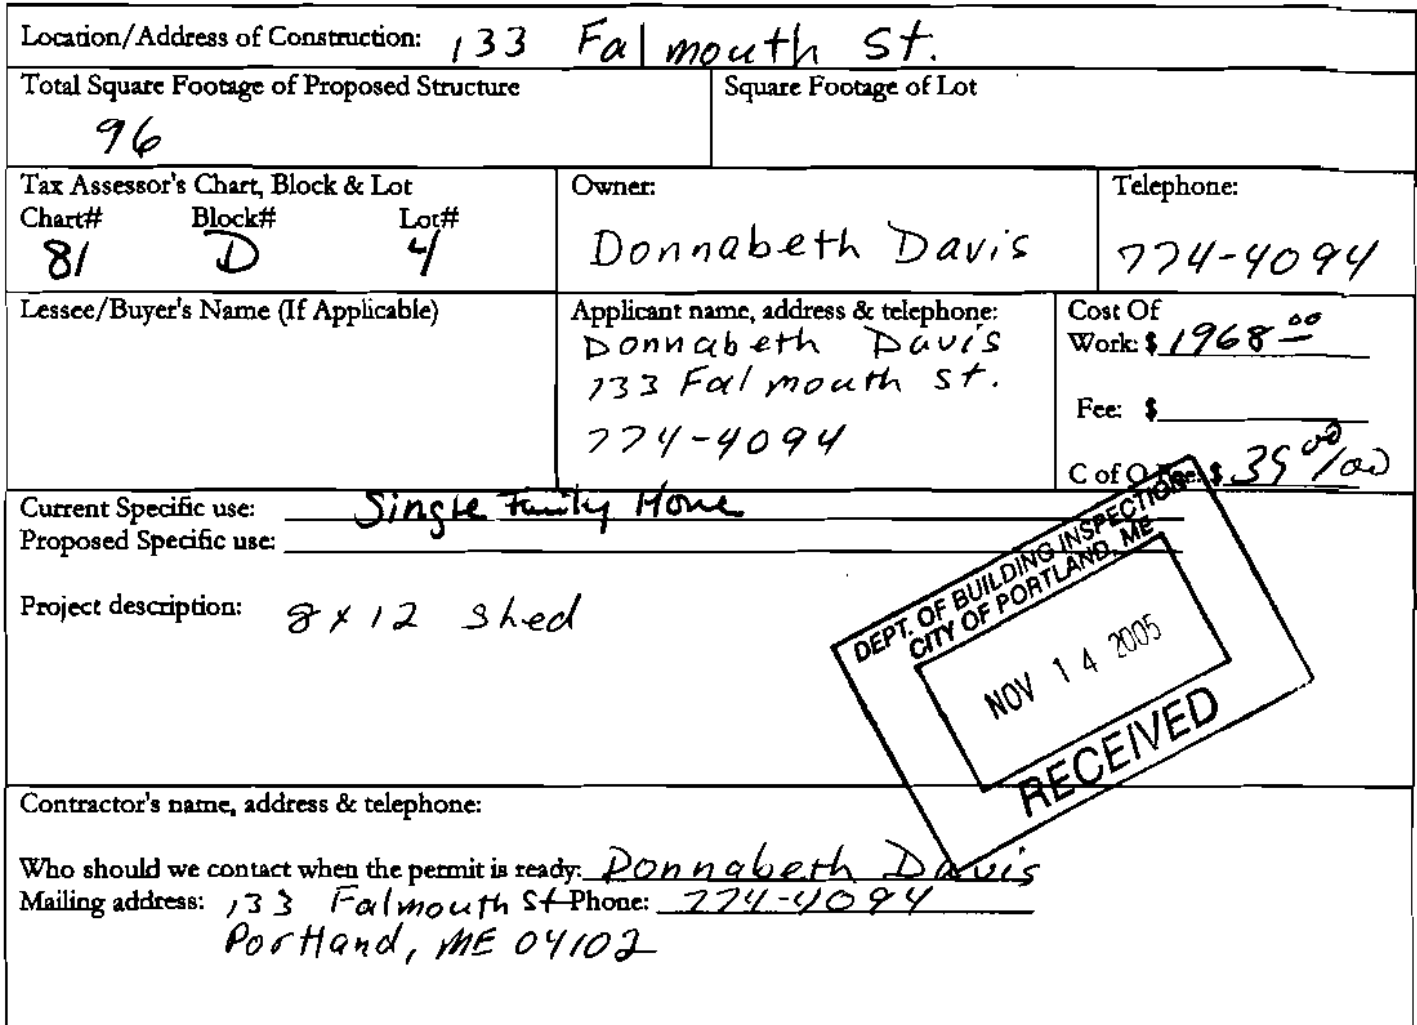 Location/Address of Construction: 133 Falmouth St.
Total Square Footage of Proposed Structure
96
Square Footage of Lot
Tax Assessor's Chart, Block & Lot
Chart# Block# Lot#
81 D 4
Owner:
Donnabeth Davis
Telephone:
774-4094
Lessee/Buyer's Name (If Applicable)
Applicant name, address & telephone:
Donnabeth Davis
133 Falmouth St.
774-4094
Cost Of
Work: $ 1968.00
Fee: $
C of O Fee: $
Current Specific use: Single Family Home
Proposed Specific use:
Project description: 8 x 12 Shed
DEPT. OF BUILDING INSPECTION
CITY OF PORTLAND, ME
NOV 14 2005
RECEIVED
Contractor's name, address & telephone:
Who should we contact when the permit is ready: Donnabeth Davis
Mailing address: 133 Falmouth St Phone: 774-4094
Portland, ME 04102